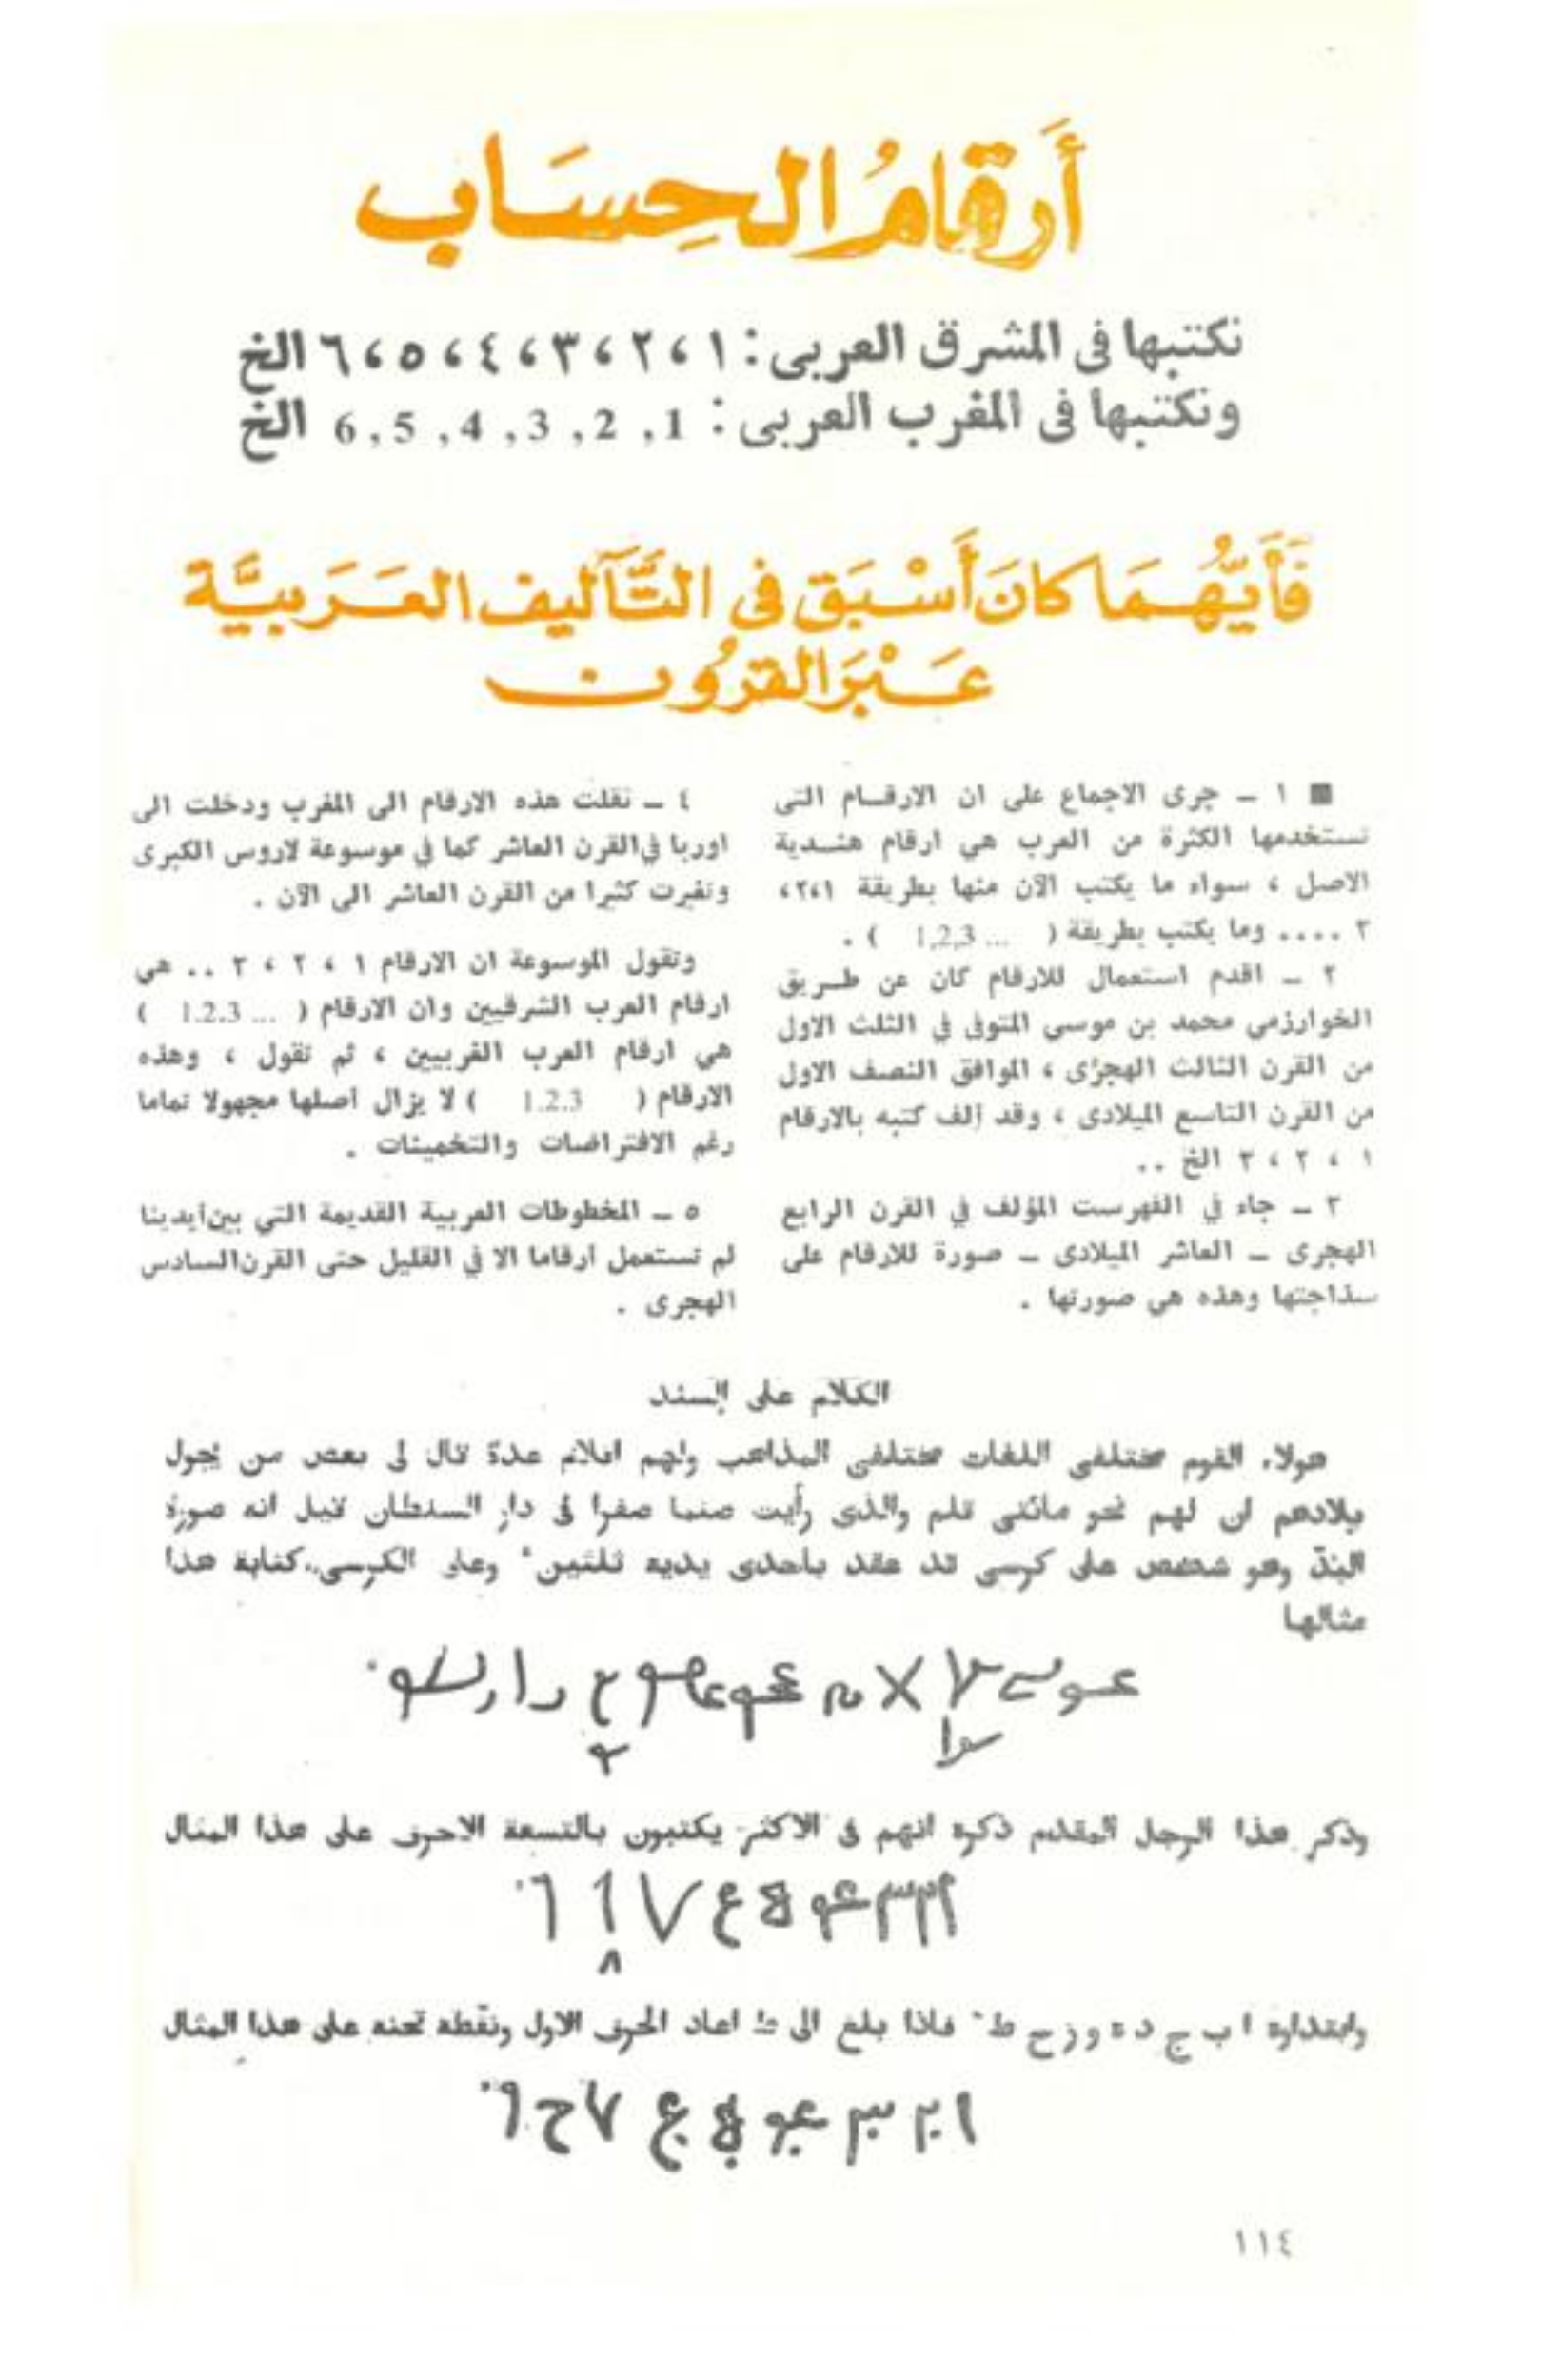 أَرقامُ الحِسَاب
نكتبها فى المشرق العربى : ١ ، ٢ ، ٣ ، ٤ ، ٥ ، ٦ الخ
ونكتبها فى المغرب العربى : 1 , 2 , 3 , 4 , 5 , 6 الخ
فَأَيُّهُمَا كانَ أَسْبَق فى التَّآليف العَرَبيَّة
عَبْرَ القرُون
■ ١ ــ جرى الاجماع على ان الارقام التى
نستخدمها الكثرة من العرب هي ارقام هندية
الاصل ، سواء ما يكتب الآن منها بطريقة ١،٢،
٣ .... وما يكتب بطريقة ( 1,2,3 ... ) .
٢ ــ اقدم استعمال للارقام كان عن طريق
الخوارزمى محمد بن موسى المتوفى في الثلث الاول
من القرن الثالث الهجرى ، الموافق النصف الاول
من القرن التاسع الميلادى ، وقد ألف كتبه بالارقام
١ ، ٢ ، ٣ الخ ..
٣ ــ جاء في الفهرست المؤلف في القرن الرابع
الهجرى ــ العاشر الميلادى ــ صورة للارقام على
سذاجتها وهذه هي صورتها .
٤ ــ نقلت هذه الارقام الى المغرب ودخلت الى
اوربا في القرن العاشر كما في موسوعة لاروس الكبرى
وتغيرت كثيرا من القرن العاشر الى الآن .
وتقول الموسوعة ان الارقام ١ ، ٢ ، ٣ .. هي
ارقام العرب الشرقيين وان الارقام ( 1.2.3 ... )
هي ارقام العرب الغربيين ، ثم تقول ، وهذه
الارقام ( 1.2.3 ) لا يزال أصلها مجهولا تماما
رغم الافتراضات والتخمينات .
٥ ــ المخطوطات العربية القديمة التي بين أيدينا
لم تستعمل أرقاما الا في القليل حتى القرن السادس
الهجرى .
الكلام على السند
هولاء القوم مختلفى اللغات مختلفى المذاهب ولهم اقلام عدة قال لى بعض من يجول
بلادهم ان لهم نحو مائتى قلم والذى رأيت صنما صفرا فى دار السلطان قيل انه صورة
البدّ وهو شخص على كرسى قد عقد باحدى يديه ثلثين وعلى الكرسى كتابة هذا
مثالها
وذكر هذا الرجل المقدم ذكره انهم فى الاكثر يكتبون بالتسعة الاحرف على هذا المثال
وابتداوه ا ب ج د ه و ز ح ط فاذا بلغ الى ط اعاد الحرف الاول ونقطه تحته على هذا المثال
١١٤